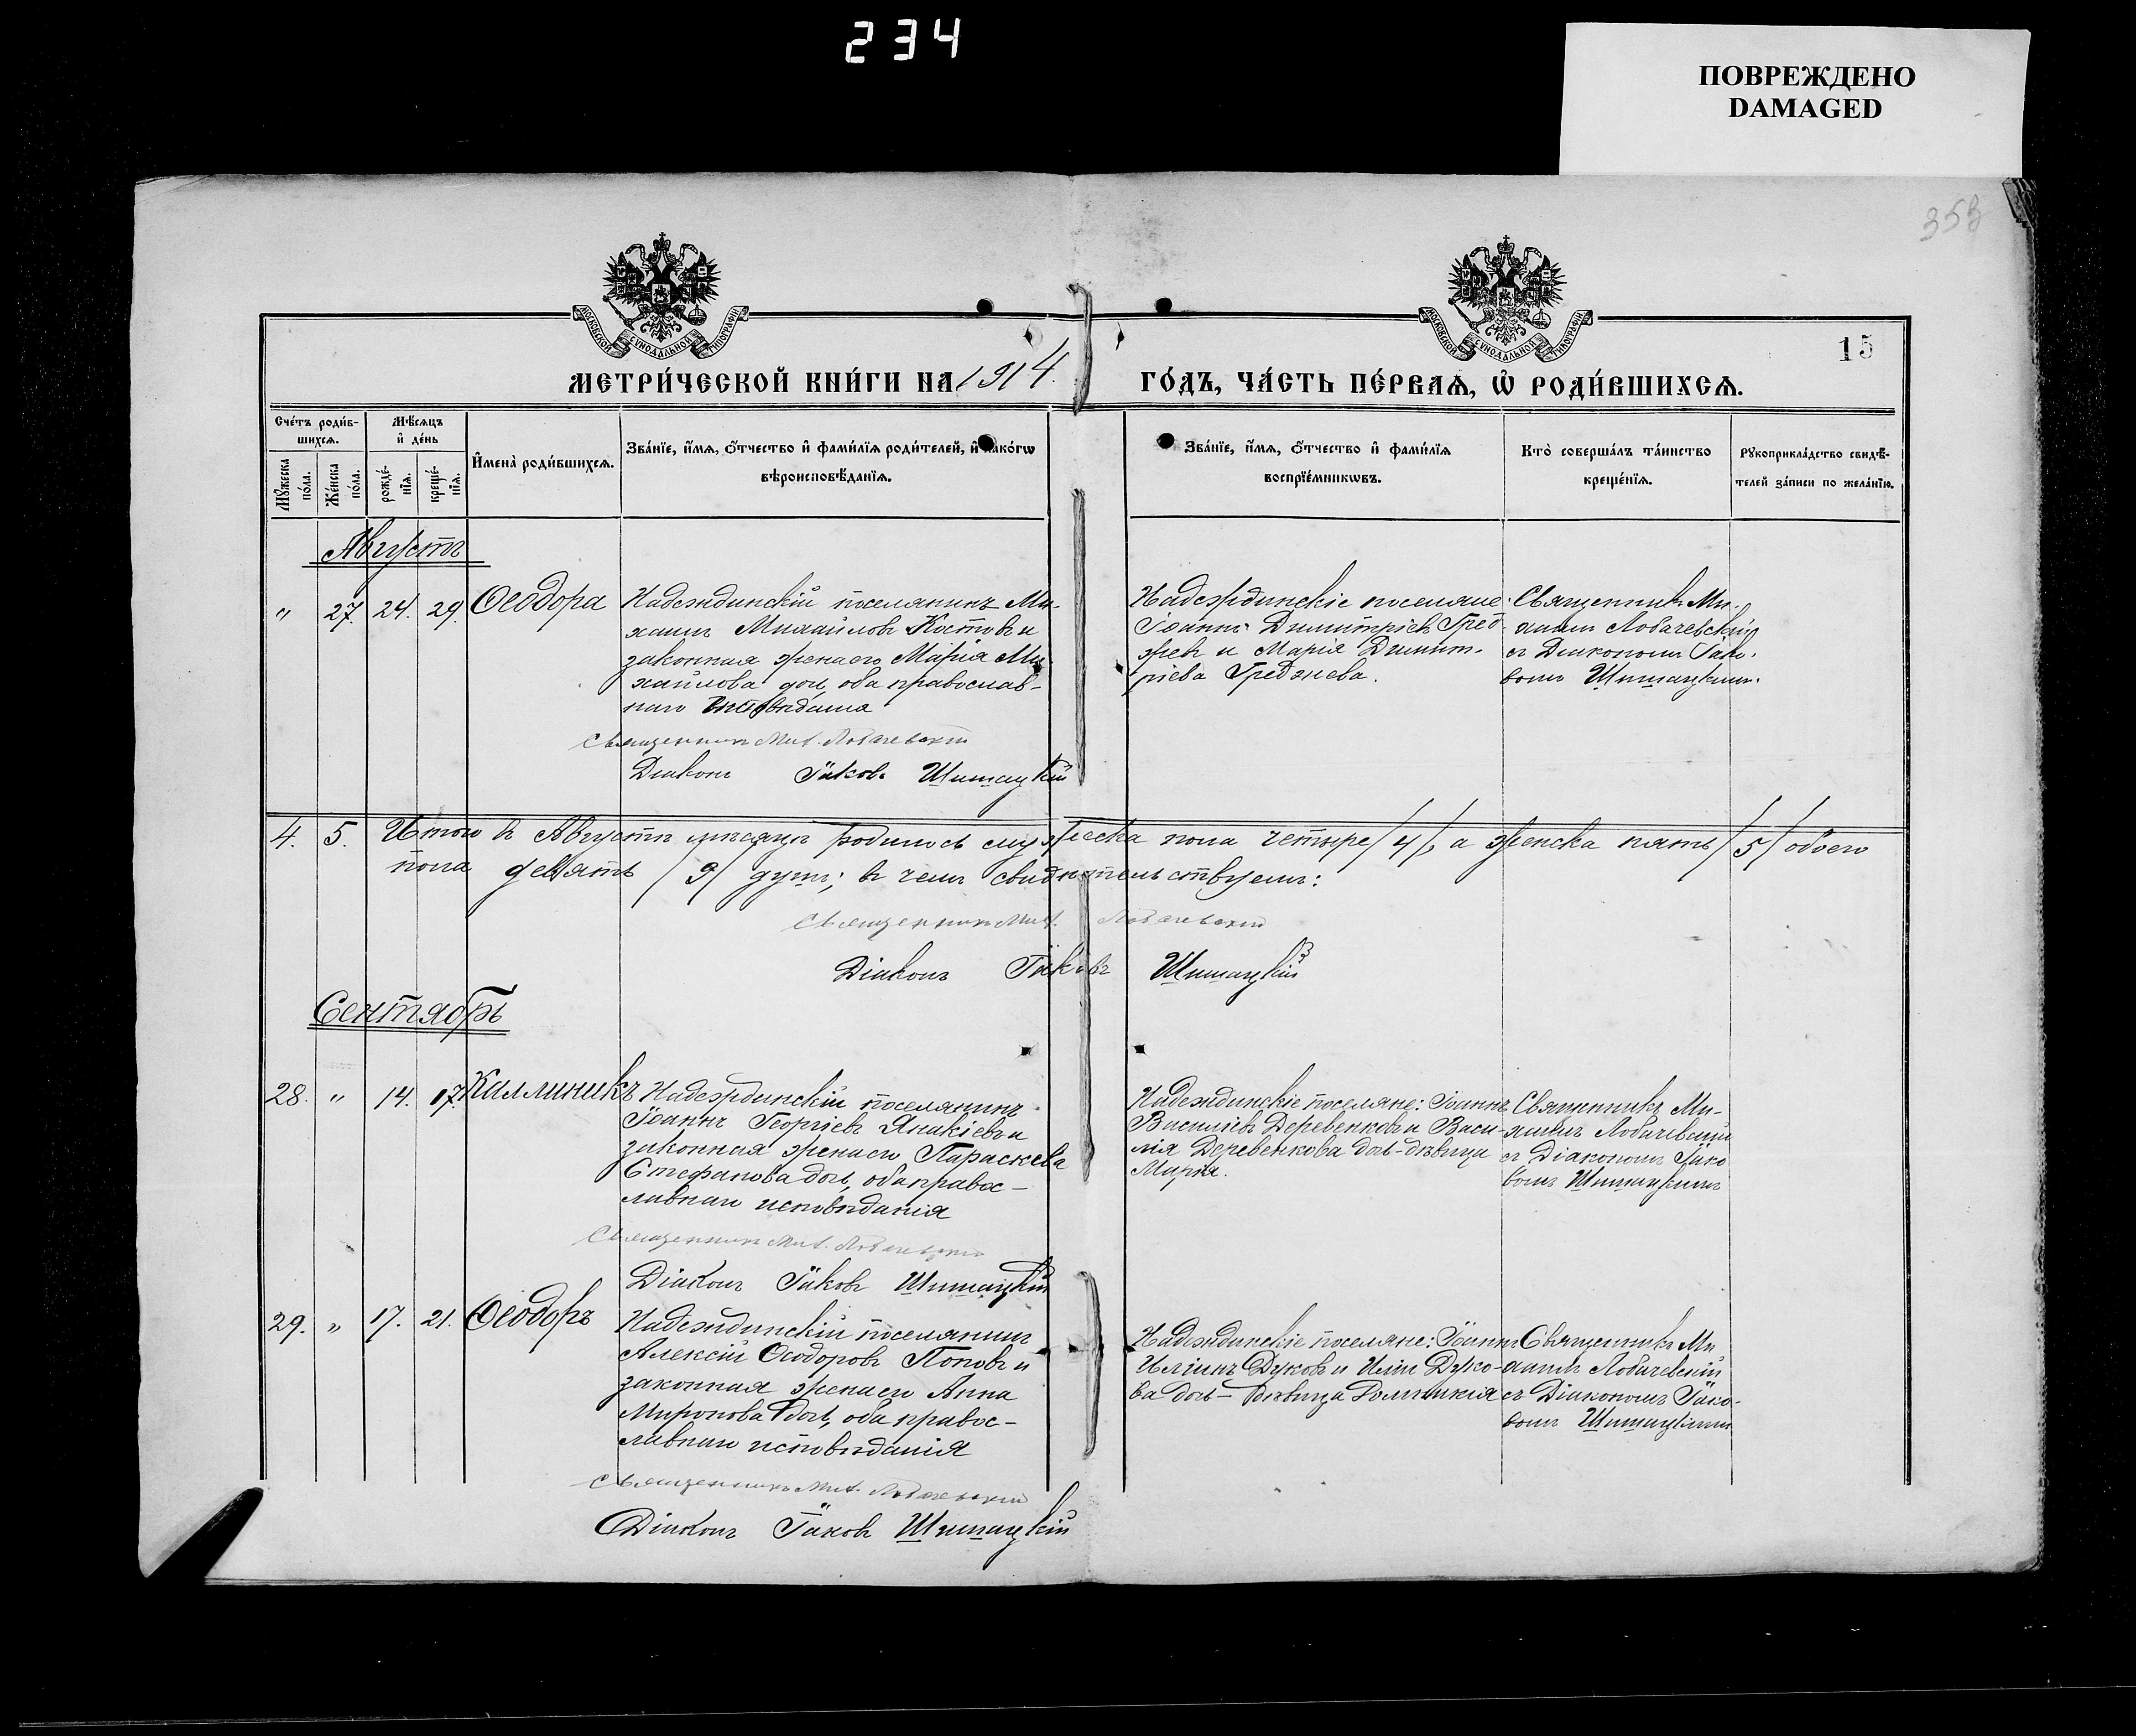 234
ПОВРЕЖДЕНО
DAMAGED
353
МОСКОВСКОЙ СУНОДАЛЬНОЙ ТИПОГРАФІИ
МОСКОВСКОЙ СУНОДАЛЬНОЙ ТИПОГРАФІИ
15
МЕТРИ́ЧЕСКОЙ КНИ́ГИ НА 1914. ГО́ДЪ, ЧА́СТЬ ПЕ́РВАѦ, Ѡ҆ РОДИ́ВШИХСѦ.
Сче́тъ роди́в-
шихсѧ.
Мѣ́сѧцъ
и҆ де́нь
Мꙋ́жеска
по́ла.
Же́нска
по́ла.
рожде́-
нїѧ.
креще́-
нїѧ.
И҆мена̀ роди́вшихсѧ.
Зва́нїе, и҆́мѧ, ѻ҆́тчество и҆ фами́лїѧ роди́телей, и҆ како́гѡ
вѣроисповѣ́данїѧ.
Зва́нїе, и҆́мѧ, ѻ҆́тчество и҆ фами́лїѧ
воспрїе́мникѡвъ.
Кто̀ соверша́лъ та́инство
креще́нїѧ.
Рꙋкоприкла́дство свидѣ́-
телей за́писи по жела́нїю.
Августъ
" 27. 24. 29. Ѳеодора
Надеждинскій поселянинъ Ми-
хаилъ Михайловъ Костовъ и
законная жена его Марія Ми-
хайлова дои, оба православ-
наго исповѣданія
Священникъ Мих. Лобачевскій
Діаконъ Іаковъ Шишацкій
Надеждинскіе поселяне:
Іоаннъ Димитріевъ Гред-
жевъ и Марія Димит-
ріева Греджева.
Священникъ Ми-
хаилъ Лобачевскій
съ Діакономъ Іако-
вомъ Шишацкимъ.
4. 5. Итого въ Августѣ мѣсяцѣ родилось мужеска пола четыре /4/, а женска пять /5/ обоего
пола девять /9/ душъ; въ чемъ свидѣтельствуемъ:
Священникъ Мих. Лобачевскій
Діаконъ Іаковъ Шишацкій
Сентябрь
28. " 14. 17. Каллиникъ
Надеждинскій поселянинъ
Іоаннъ Георгіевъ Янакіевъ и
законная жена его Параскева
Стефанова дои, оба правос-
лавнаго исповѣданія
Священникъ Мих. Лобачевскій
Діаконъ Іаковъ Шишацкій
Надеждинскіе поселяне: Іоаннъ
Василіевъ Деревенковъ и Васи-
лія Деревенкова дочь-дѣвица
Марія.
Священникъ Ми-
хаилъ Лобачевскій
съ Діакономъ Іако
вомъ Шишацкимъ
29. " 17. 21. Ѳеодоръ
Надеждинскій поселянинъ
Алексій Ѳеодоровъ Поповъ и
законная жена его Анна
Миронова дои, оба правос-
лавнаго исповѣданія
Священникъ Мих. Лобачевскій
Діаконъ Іаковъ Шишацкій
Надеждинскіе поселяне: Іоаннъ
Иліинъ Дуковъ и Иліи Дуко-
ва дочь - дѣвица Домникія
Священникъ Ми
хаилъ Лобачевскій
съ Діакономъ Іако-
вомъ Шишацкимъ